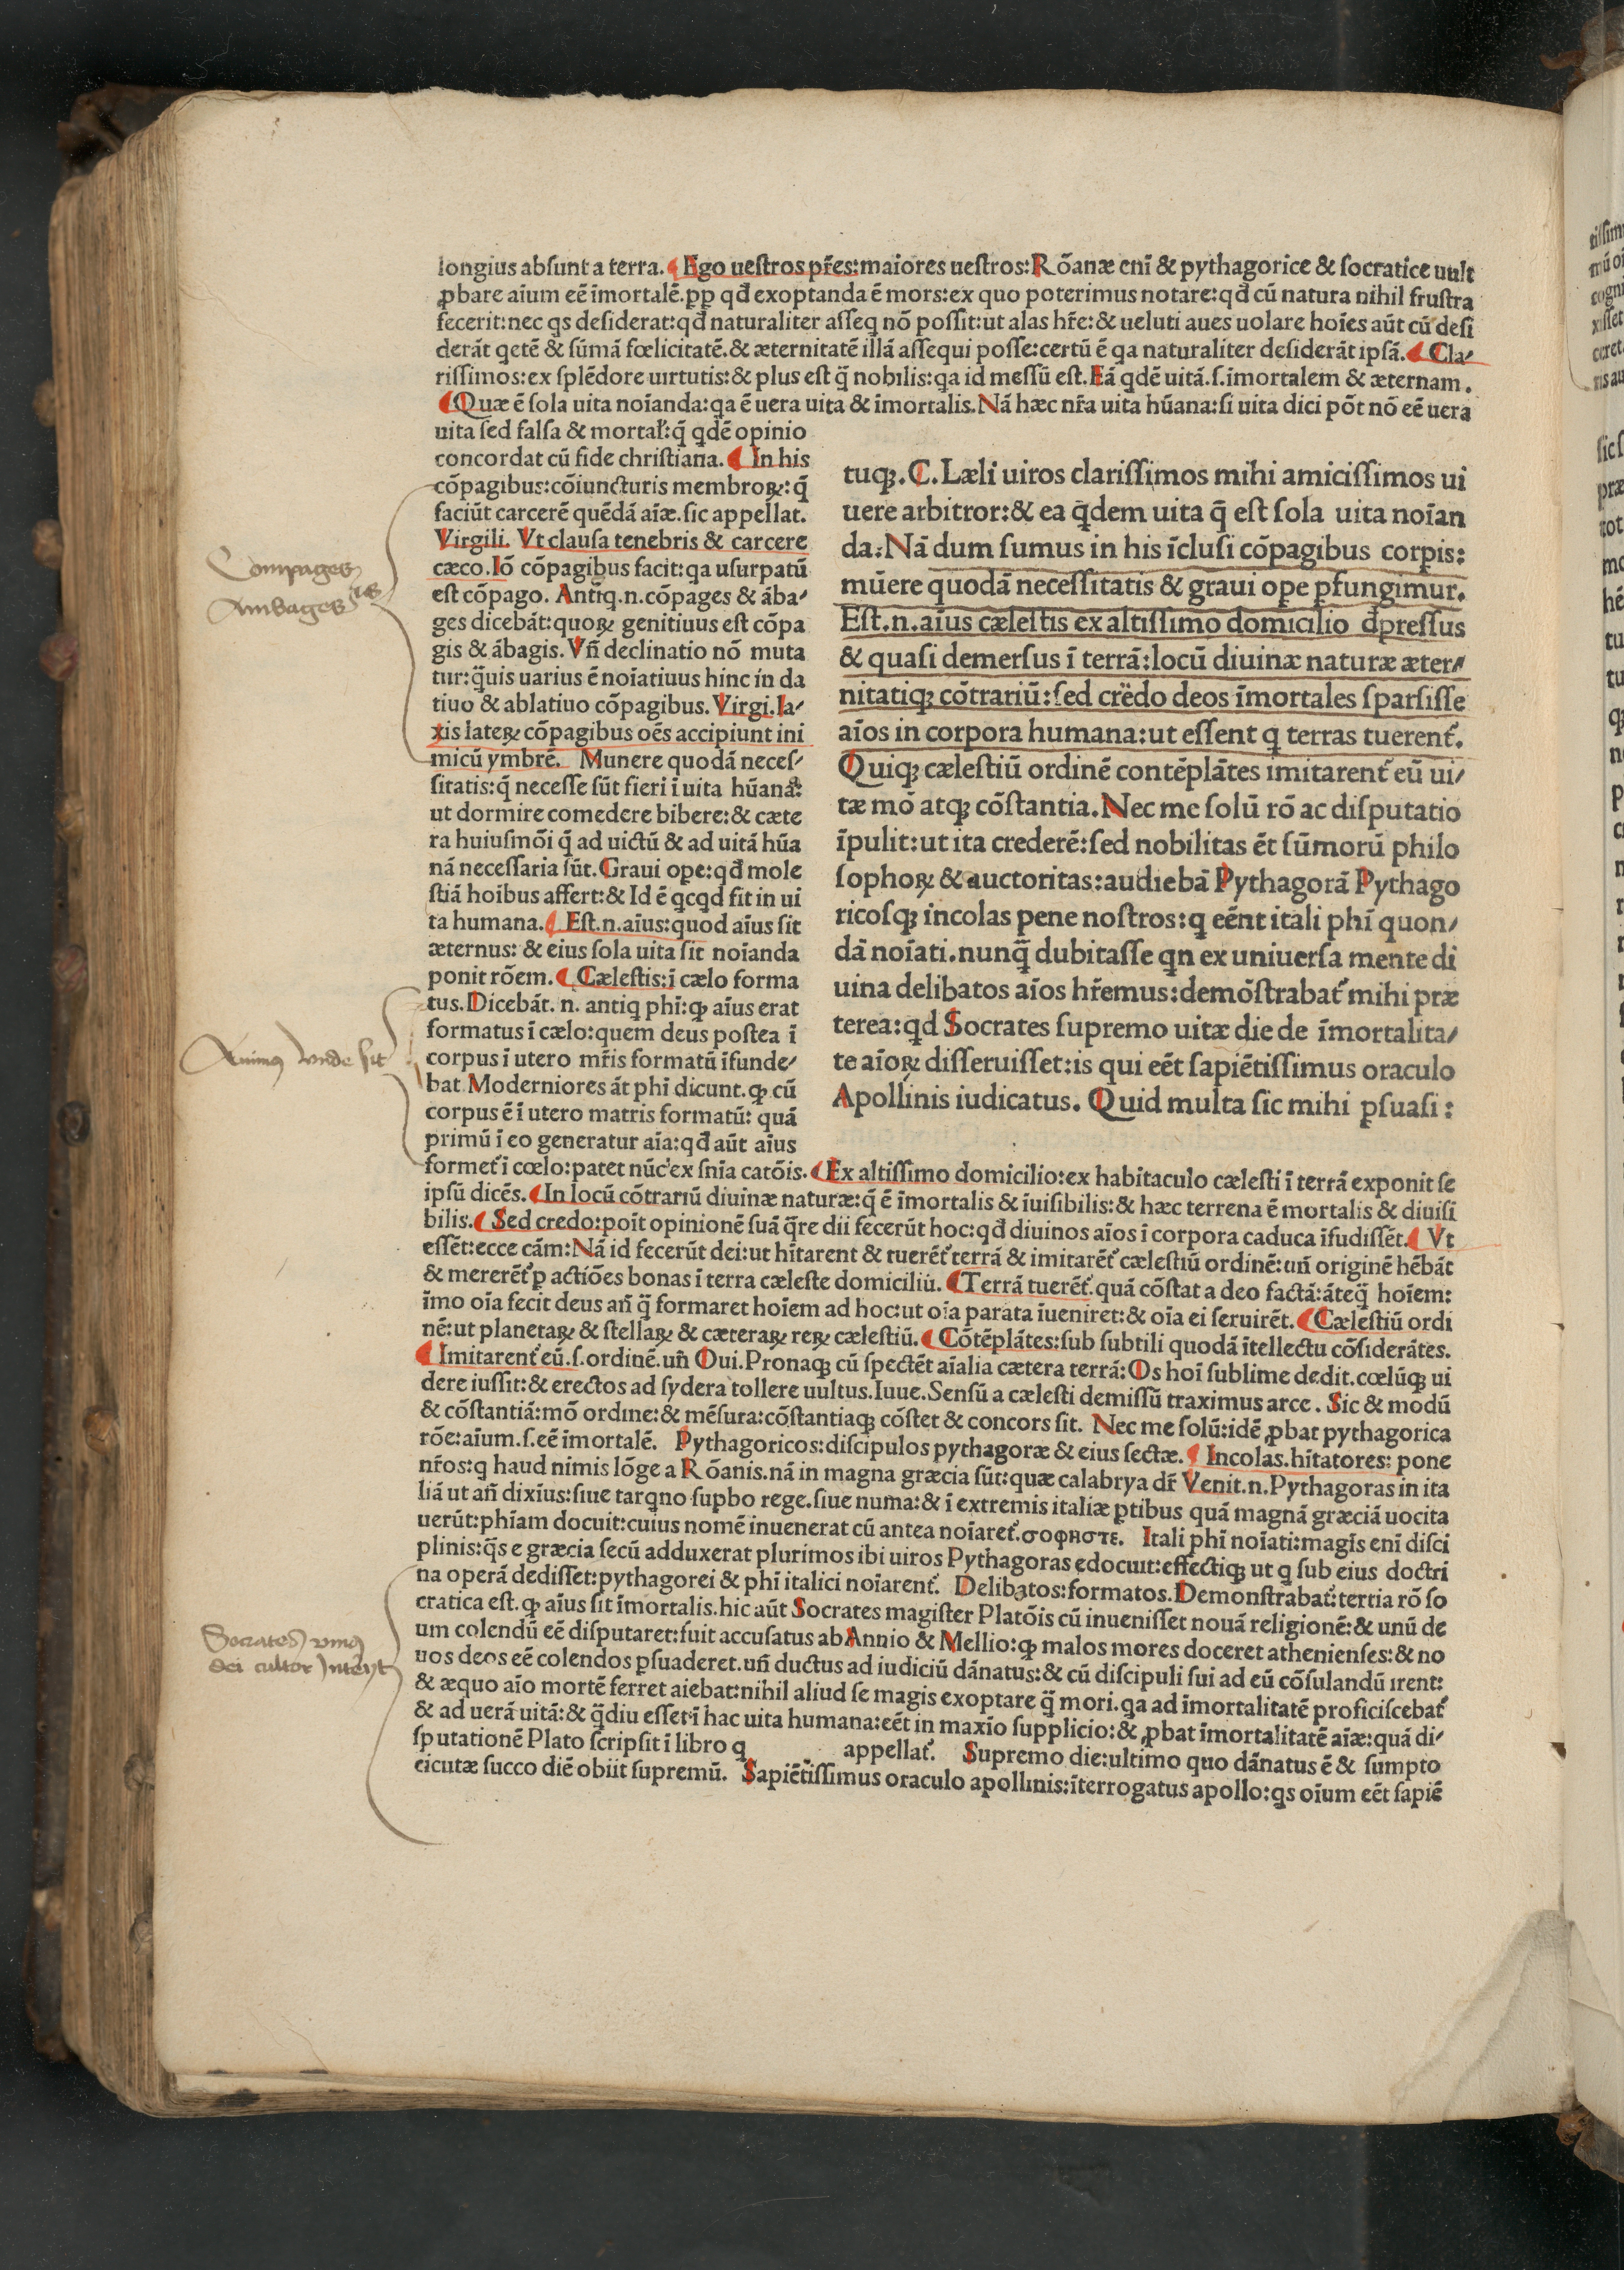 longius abſunt a terra. ¶ Ego ueſtros pr̄es: maiores ueſtros: Rōanæ eni & pythagorice & ſocratice uult
ꝓbare aīum eē īmortalē. ꝑꝑ qđ exoptanda ē mors: ex quo poterimus notare: qđ cū natura nihil fruſtra
fecerit: nec qs deſiderat: qđ naturaliter aſſeq nō poſſit: ut alas hr̄e: & ueluti aues uolare hoīes aūt cū deſi
derāt qetē & ſūmā fœlicitatē. & æternitatē illā aſſequi poſſe: certū ē qa naturaliter deſiderāt ipſā. ¶ Cla⸗
riſſimos: ex ſplēdore uirtutis: & plus eſt q̄ nobilis: qa id meſſū eſt. Eā qdē uitā. ſ. īmortalem & æternam.
¶ Quæ ē ſola uita noīanda: qa ē uera uita & īmortalis. Nā hæc nr̄a uita hūana: ſi uita dici pōt nō eē uera
uita ſed falſa & mortaľ: q̄ qdē opinio
concordat cū fide chriſtiana. ¶ In his
cōpagibus: cōiuncturis membroꝝ: q̄
faciūt carcerē quēdā aīæ. ſic appellat.
Virgili. Vt clauſa tenebris & carcere
cæco. Iō cōpagibus facit: qa uſurpatū
eſt cōpago. Antiq. n. cōpages & āba⸗
ges dicebāt: quoꝝ genitiuus eſt cōpa
gis & ābagis. Vn̄ declinatio nō muta
tur: q̄uis uarius ē noīatiuus hinc in da
tiuo & ablatiuo cōpagibus. Virgi. la⸗
xis lateꝝ cōpagibus oēs accipiunt ini
micū ymbrē. Munere quodā neceſ⸗
ſitatis: q̄ neceſſe ſūt fieri ī uita hūana:
ut dormire comedere bibere: & cæte
ra huiuſmōi q̄ ad uictū & ad uitā hūa
nā neceſſaria ſūt. Graui ope: qđ mole
ſtiā hoībus affert: & Id ē qcqd fit in ui
ta humana. ¶ Eſt. n. aīus: quod aīus ſit
æternus: & eius ſola uita ſit noīanda
ponit rōem. ¶ Cæleſtis: ī cælo forma
tus. Dicebāt. n. antiq phī: ꝙ aīus erat
formatus ī cælo: quem deus poſtea ī
corpus ī utero mr̄is formatū īfunde⸗
bat. Moderniores āt phī dicunt. ꝙ cū
corpus ē ī utero matris formatū: quā
primū ī eo generatur aīa: qđ aūt aīus
tuqꝫ. C. Læli uiros clariſſimos mihi amiciſſimos ui
uere arbitror: & ea q̄dem uita q̄ eſt ſola uita noīan
da: Nā dum ſumus in his īcluſi cōpagibus corpis:
mūere quodā neceſſitatis & graui ope pfungimur.
Eſt. n. aīus cæleſtis ex altiſſimo domicilio dpreſſus
& quaſi demerſus ī terrā: locū diuinæ naturæ æter⸗
nitatiqꝫ cōtrariū: ſed credo deos īmortales ſparſiſſe
aīos in corpora humana: ut eſſent q terras tuerent᷑.
Quiqꝫ cæleſtiū ordinē contēplātes imitarent᷑ eū ui⸗
tæ mō atqꝫ cōſtantia. Nec me ſolū rō ac diſputatio
īpulit: ut ita crederē: ſed nobilitas ēt ſūmorū philo
ſophoꝝ & auctoritas: audiebā Pythagorā Pythago
ricoſqꝫ incolas pene noſtros: q eēnt itali phī quon⸗
dā noīati. nunq̄ dubitaſſe qn ex uniuerſa mente di
uina delibatos aīos hr̄emus: demōſtrabat᷑ mihi præ
terea: qd Socrates ſupremo uitæ die de īmortalita⸗
te aīoꝝ diſſeruiſſet: is qui eēt ſapiētiſſimus oraculo
Apollinis iudicatus. Quid multa ſic mihi pſuaſi:
formet᷑ ī cœlo: patet nūc ex ſnīa catōis. ¶ Ex altiſſimo domicilio: ex habitaculo cæleſti ī terrā exponit ſe
ipſū dicēs. ¶ In locū cōtrariū diuinæ naturæ: q̄ ē īmortalis & īuiſibilis: & hæc terrena ē mortalis & diuiſi
bilis. ¶ Sed credo: poīt opinionē ſuā q̄re dii fecerūt hoc: qđ diuinos aīos ī corpora caduca īfudiſſēt. ¶ Vt
eſſēt: ecce cām: Nā id fecerūt dei: ut hītarent & tuerēt᷑ terrā & imitarēt᷑ cæleſtiū ordinē: un̄ originē hēbāt
& mererēt᷑ ꝑ actiōes bonas ī terra cæleſte domiciliū. ¶ Terrā tuerēt᷑. quā cōſtat a deo factā: āteq̄ hoīem:
īmo oīa fecit deus an̄ q̄ formaret hoīem ad hoc: ut oīa parata īueniret: & oīa ei ſeruirēt. ¶ Cæleſtiū ordi
nē: ut planetaꝝ & ſtellaꝝ & cæteraꝝ reꝝ cæleſtiū. ¶ Cōtēplātes: ſub ſubtili quodā ītellectu cōſiderātes.
¶ Imitarent᷑ eū. ſ. ordinē. un̄ Oui. Pronaqꝫ cū ſpectēt aīalia cætera terrā: Os hoī ſublime dedit. cœlūqꝫ ui
dere iuſſit: & erectos ad ſydera tollere uultus. Iuue. Senſū a cæleſti demiſſū traximus arce. Sic & modū
& cōſtantiā: mō ordine: & mēſura: cōſtantiaqꝫ cōſtet & concors ſit. Nec me ſolū: idē ꝓbat pythagorica
rōe: aīum. ſ. eē īmortalē. Pythagoricos: diſcipulos pythagoræ & eius ſectæ. ¶ Incolas. hītatores: pone
nr̄os: q haud nimis lōge a Rōanis. nā in magna græcia ſūt: quæ calabrya dr̄ Venit. n. Pythagoras in ita
liā ut an̄ dixīus: ſiue tarqno ſupbo rege. ſiue numa: & ī extremis italiæ ꝑtibus quā magnā græciā uocita
uerūt: phīam docuit: cuius nomē inuenerat cū antea noīaret᷑. σοφηστε. Itali phī noīati: magis enī diſci
plinis: q̄s e græcia ſecū adduxerat plurimos ibi uiros Pythagoras edocuit: effectiqꝫ ut q ſub eius doctri
na operā dediſſet: pythagorei & phī italici noīarent᷑. Delibatos: formatos. Demonſtrabat᷑: tertia rō ſo
cratica eſt. ꝙ aīus ſit īmortalis. hic aūt Socrates magiſter Platōis cū inueniſſet nouā religionē: & unū de
um colendū eē diſputaret: fuit accuſatus ab Annio & Mellio: ꝙ malos mores doceret athenienſes: & no
uos deos eē colendos pſuaderet. un̄ ductus ad iudiciū dānatus: & cū diſcipuli ſui ad eū cōſulandū irent:
& æquo aīo mortē ferret aiebat: nihil aliud ſe magis exoptare q̄ mori. qa ad īmortalitatē proficiſcebat᷑
& ad uerā uitā: & q̄diu eſſet ī hac uita humana: eēt in maxīo ſupplicio: & ꝓbat īmortalitatē aīæ: quā di⸗
ſputationē Plato ſcripſit ī libro q appellat᷑. Supremo die: ultimo quo dānatus ē & ſumpto
cicutæ ſucco diē obiit ſupremū. Sapiētiſſimus oraculo apollinis: īterrogatus apollo: qs oīum eēt ſapiē
Compages
Ambages is
Animꝰ vnde ſit
Socrates vniꝰ
dei cultor